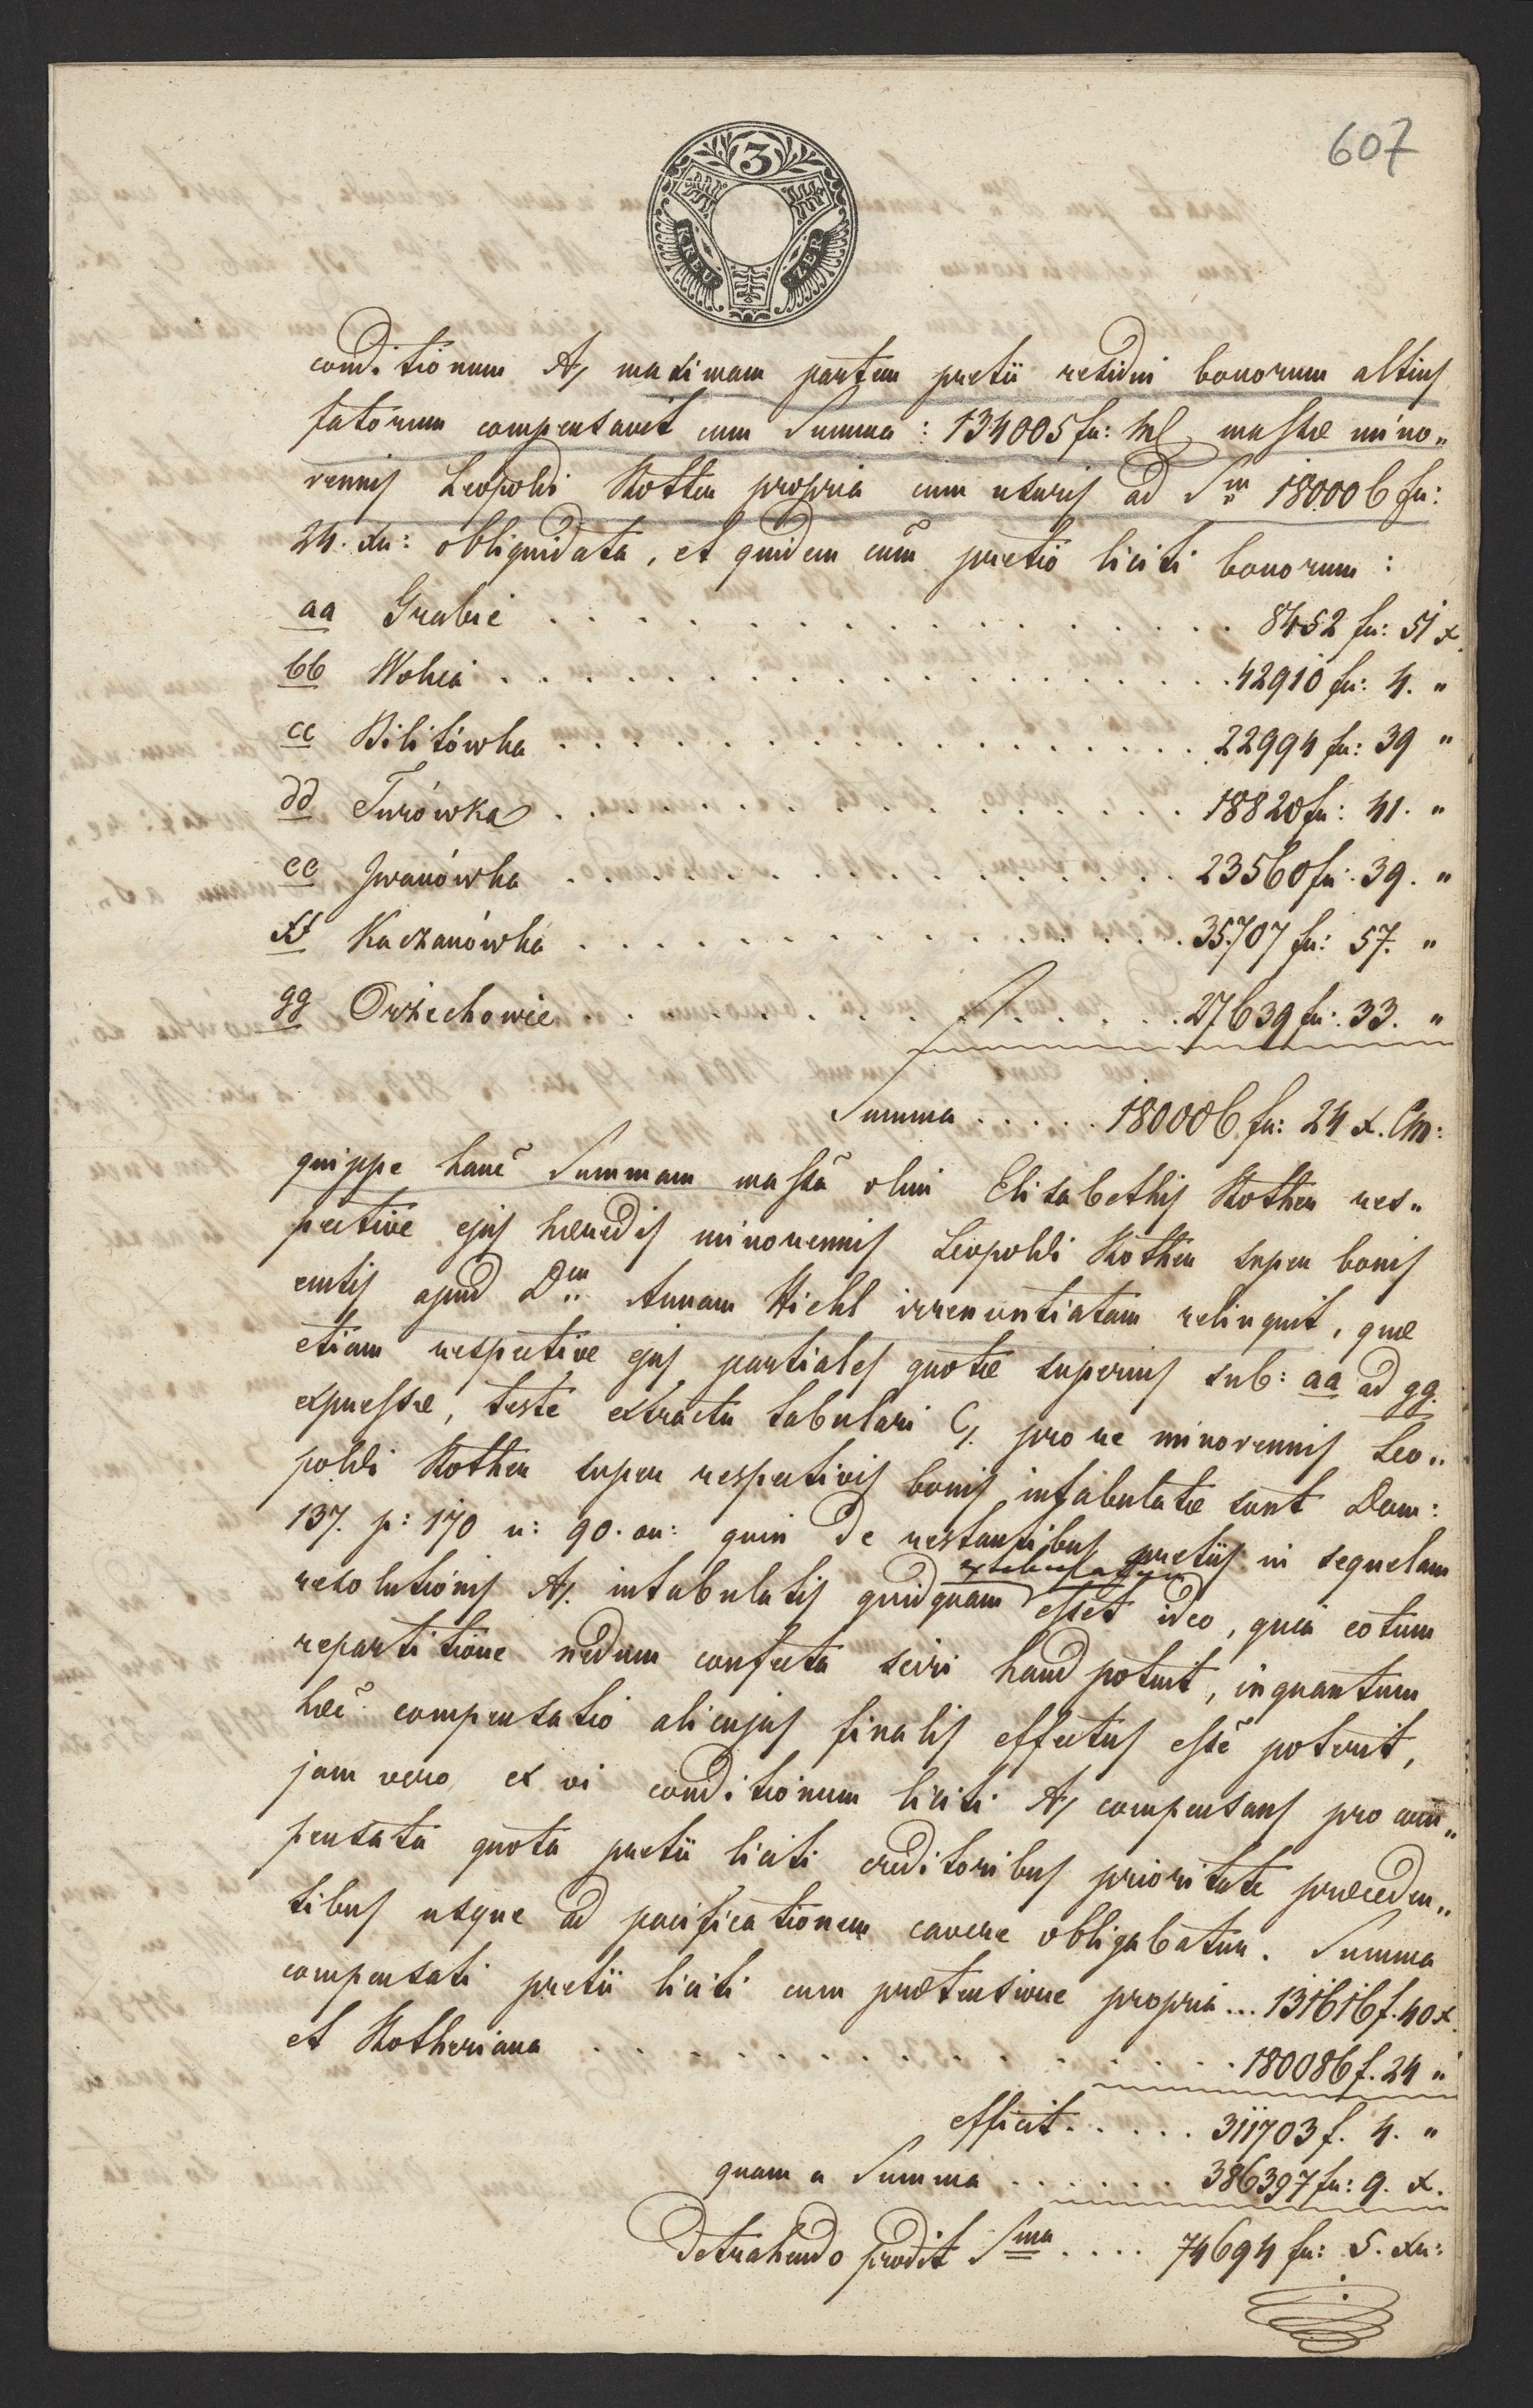 607
3
KREU ZER
conditionum A/ maximam partem pretii residui bonorum altius
fatorum compensavit cum Summa: 134005 fr: massæ mino„
rennis Leopoldi Rother propria cum usuris ad Sm 180006 fr:
24. xr: obliquidata, et quidem cum pretio liciti bonorum:
aa Grabie . . . 8452 fr: 51 x.
bb Wolica . . . 42910 fr: 4. "
cc Bilitówka . . . 22994 fr: 39 "
dd Turówka . . . 18820 fr: 41. "
ee Iwanówka . . . 23560 fr: 39. "
ff Kaczanówka . . . 35707 fr: 57. "
gg Orzechowiec . . . 27639 fr: 33. "
Summa . . . . . 180086 fr: 24 x. Cm:
quippe hanc Summam massa olim Elisabethis Rother res„
pective ejus hæredis minorennis Leopoldi Rother super bonis
emtis apud Dm Annam Hiehl irrenuntiatam relinquit, quæ
etiam respective ejus partiales quotæ superius sub: aa ad gg.
expressæ, teste extractu tabulari C/. pro re minorennis Leo„
poldi Rother super respectivis bonis intabulatæ sunt Dom:
137. p: 170 n: 90. on: quin de restantibus pretiis in sequelam
resolutionis A/. intabulatis quidquam extabulatum esset ideo, quia eotum
repartitione nedum confecta sciri haud potuit, inquantum
hæc compensatio alicujus finalis effectus esse poterit,
jam vero ex vi conditionum liciti A/ compensans pro com„
pensata quota pretii liciti creditoribus prioritate præceden„
tibus usque ad pacificationem cavere obligabatur. Summa
compensati pretii liciti cum prætensione propria ... 131616 f. 40 x.
et Rotheriana . . . 180086 f. 24 "
efficit . . . . . 311703 f. 4. "
quam a Summa . . . . . . 386397 fr: 9. x.
detrahendo prodit Sma . . . . 74694 fr: 5. xr: